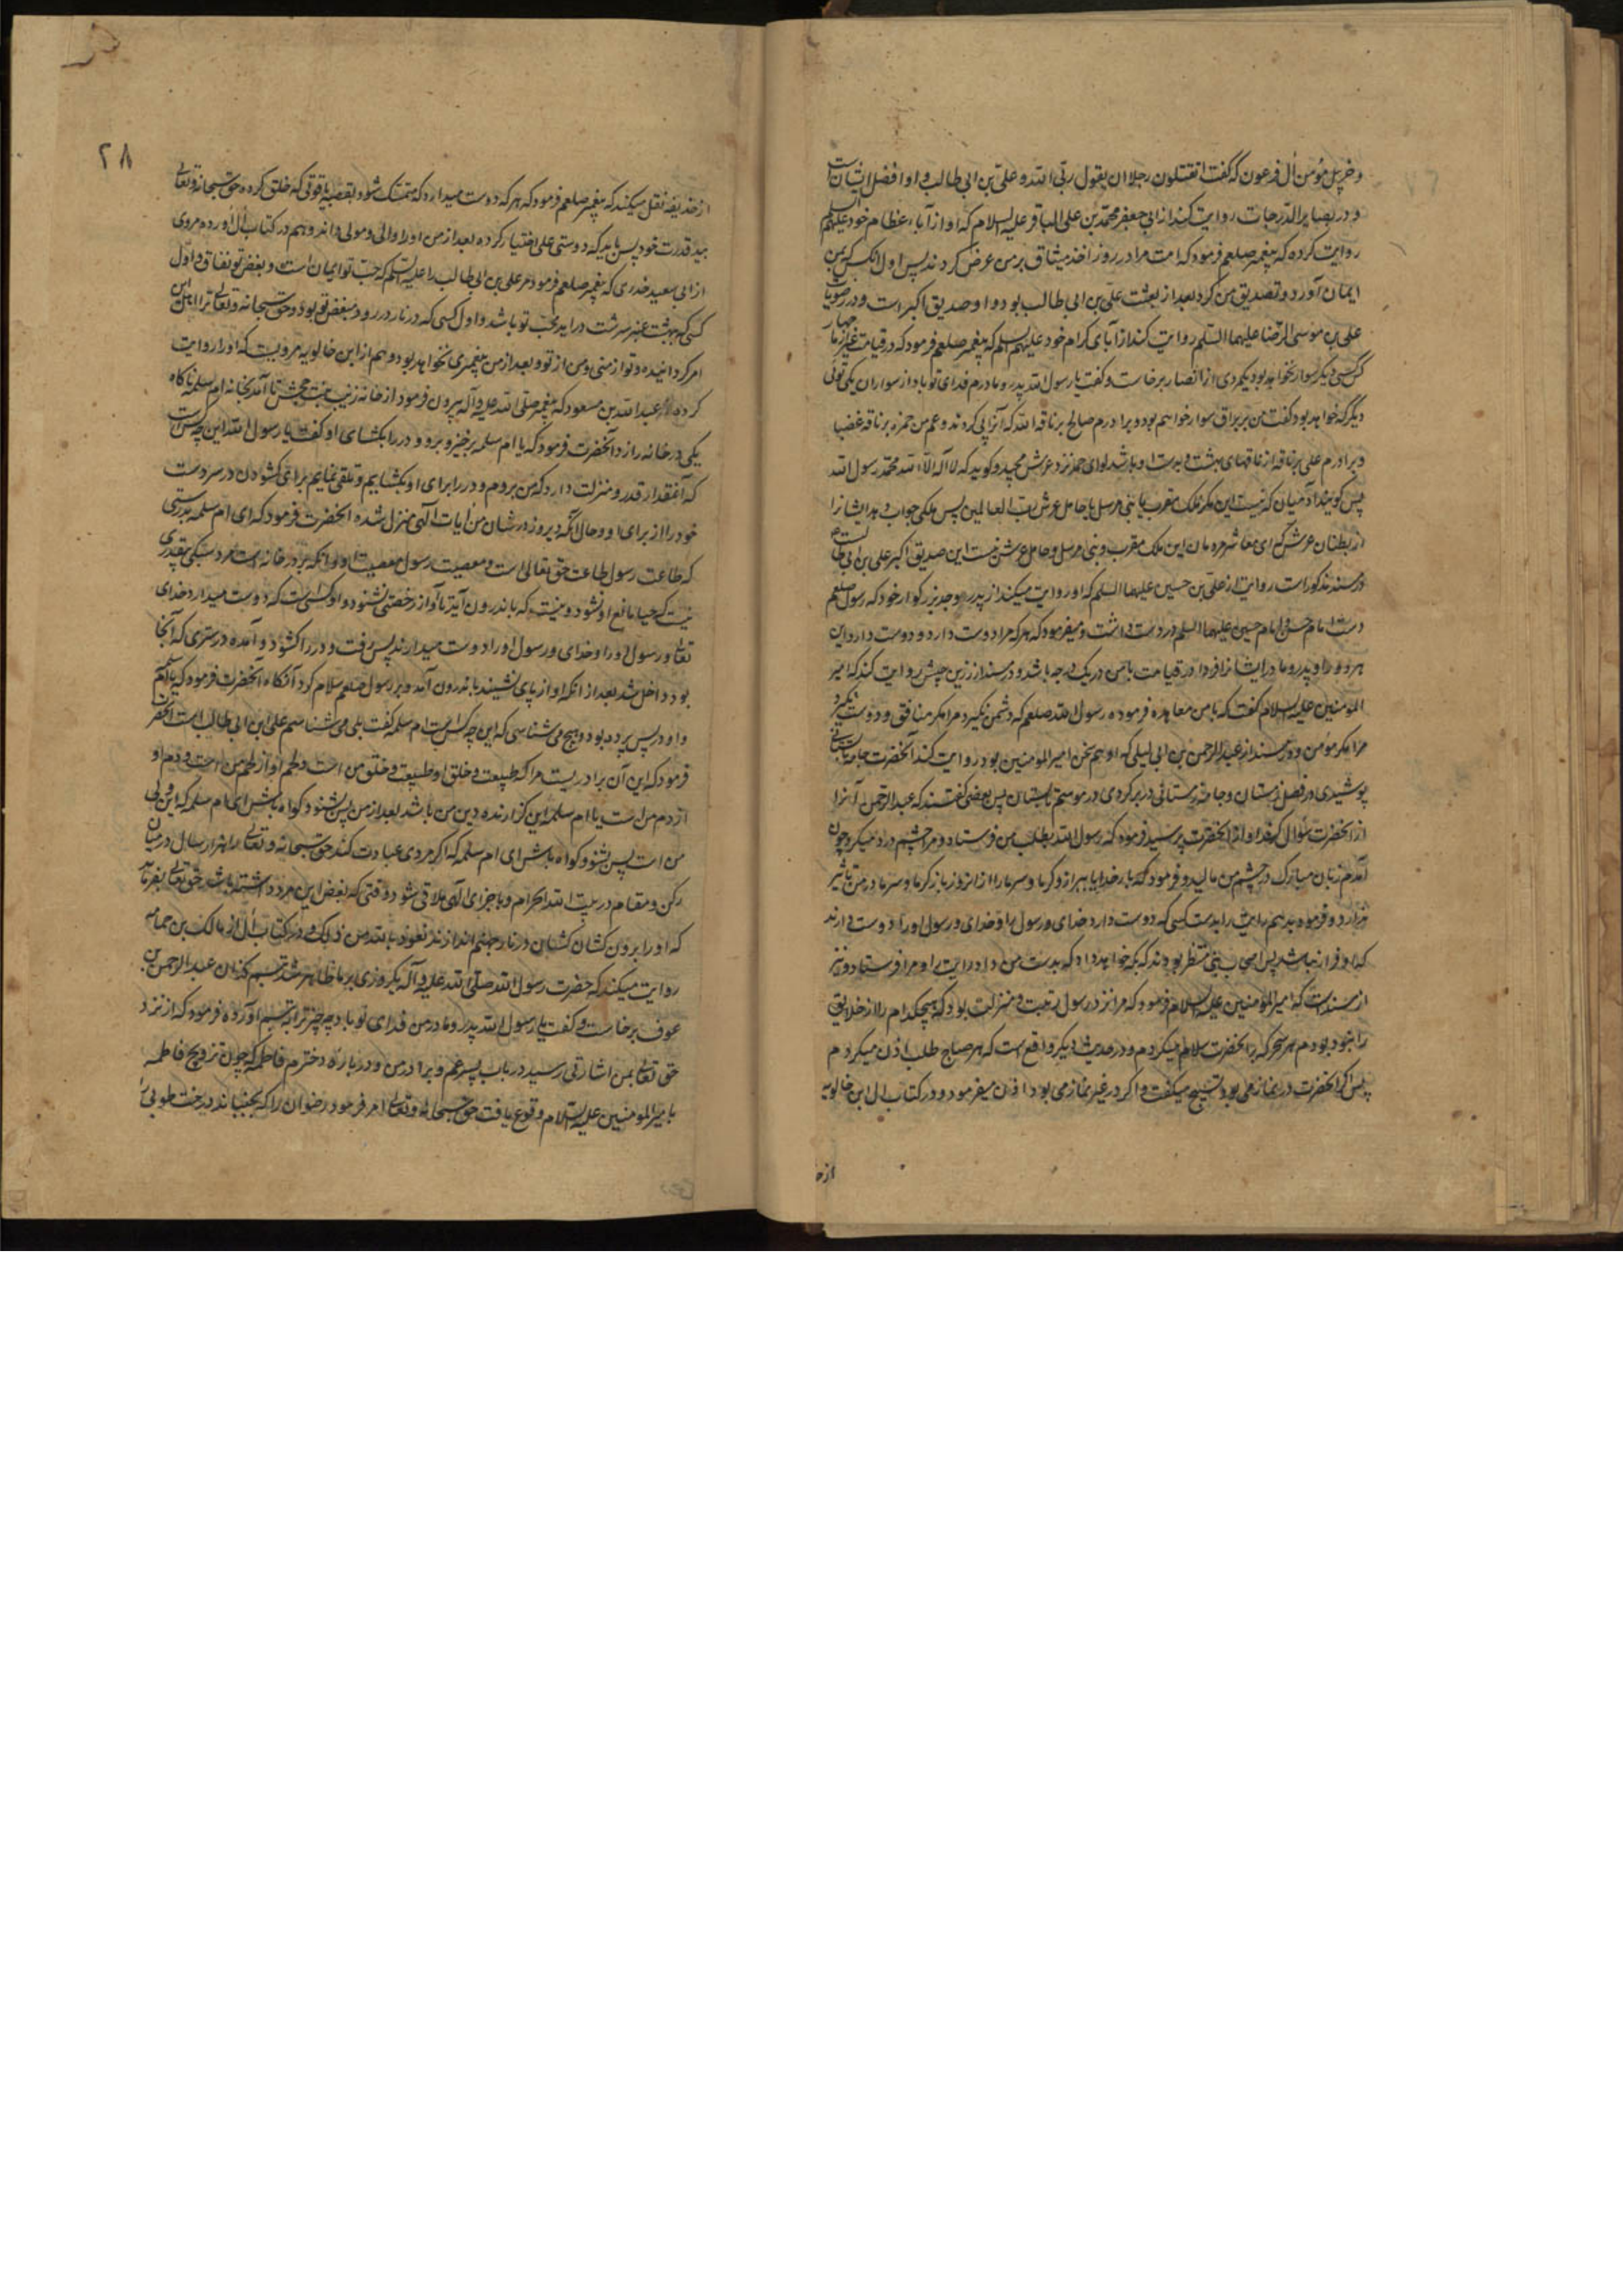 و خرپیل مؤمن آل فرعون که گفت اتقتلون رجلا ان یقول ربی الله و علی بن ابی طالب و او افضل ایشان است
و در بصایر الدرجات روایت کند از ابی جعفر محمد بن علی الباقر علیه السلام که او از آباء عظام خود علیهم السلم
روایت کرده که پیغمبر صلعم فرمود که امت مرا در روز اخذ میثاق بر من عرض کردند پس اول آنکس که بمن
ایمان آورد و تصدیق من کرد بعد از بعثت علی بن ابی طالب بود و او صدیق اکبر است و در
علی بن موسی الرضا علیهما السلم روایت کند از آبای کرام خود علیهم السلم که پیغمبر صلعم فرمود که در قیامت غیر از ما چهار
کس کسی دیگر سوار نخواهد بود یکمردی از انصار برخاست و گفت یا رسول الله پدر و مادرم فدای تو باد از سواران یکی توئی
دیگر که خواهد بود گفت من بر براق سوار خواهم بود و برادرم صالح بر ناقه الله که آنرا پی کردند و عم من حمزه بر ناقه غضبا
و برادرم علی بر ناقه از ناقهای بهشت و بدست او باشد لوای حمد نزد عرش مجید و کوید که لا اله الا الله محمد رسول الله
پس کویند آدمیان که نیست این مکر ملک مقرب یا نبی مرسل یا حامل عرش رب العالمین پس ملکی جواب دهد ایشانرا
از بطنان عرش که ای معاشر مردمان این ملک مقرب و نبی مرسل و حامل عرش نیست این صدیق اکبر علی بن ابی طالب است
در مسند مذکور است روایت از علی بن حسین علیهما السلم که او روایت میکند از پدر و جد بزرکوار خود که رسول صلعم
دست امام حسن و امام حسین علیهما السلم در دست داشت و میفرمود که هر که مرا دوست دارد و دوست دارد این
هر دو را و پدر و مادر ایشانرا فردا در قیامت با من در یک درجه باشد و در مسند از زرین حبیش روایت کند که امیر
المومنین علیه السلام گفت که با من معاهده فرموده رسول الله صلعم که دشمن نگیرد مرا مکر منافق و دوست نگیرد
مرا مکر مؤمن و در مسند از عبد الرحمن بن ابی لیلی که او هم سخن امیر المومنین بود روایت کند آنحضرت جامه تابستانی
پوشیدی در فصل زمستان و جامه زمستانی در بر کردی در موسم تابستان پس بعضی گفتند که عبد الرحمن آنرا
از آنحضرت سؤال کند او از آنحضرت پرسید فرمود که رسول الله بطلب من فرستاد و مرا چشم درد میکرد چون
آمدم زبان مبارک در چشم من مالید و فرمود که بار خدایا ببر از و کرما و سرما را از انروز باز کرما و سرما در من تأثیر
ندارد و فرمود بدهم رایت را بدست کسی که دوست دارد خدای و رسول را و خدای و رسول او را دوست دارند
که او فرار نباشد پس اصحاب نبی منتظر بودند که بکه خواهد داد که بدست من داد رایت را و مرا فرستاد و نیز
از مسند است که امیر المؤمنین علیه السلام فرمود که مرا نزد رسول رتبت و منزلت بود که هیچکدام را از خلایق
را نبود بودم هر سحر که بر آنحضرت سلام میکردم و در حدیث دیگر واقع است که هر صباح طلب اذن میکردم
پس اگر آنحضرت در نماز می بود تسبیح میکفت و اکر در غیر نماز می بود اذن میفرمود و در کتاب ال ابن خالویه
از حذ
۲۸
از حذیفه نقل میکند که پیغمبر صلعم فرمود که هر که دوست میدارد که متمسک شود بقصبه یاقوتی که خلق کرده حق سبحانه و تعالی
بید قدرت خود پس باید که دوستی علی اختیار کرده بعد از من او را والی و مولی داند و هم در کتاب آل آورده مروی
از ابی سعید خدری که پیغمبر صلعم فرمود مر علی بن ابی طالب را علیه السلم که حب تو ایمان است و بغض تو نفاق و اول
کسی که بهشت عنبر سرشت در اید محب تو باشد و اول کسی که در نار در رود مبغض تو بود و حق سبحانه و تعالی ترا اهل این
امر کردانیده و تو از منی و من از تو و بعد از من پیغمبری نخواهد بود و هم از ابن خالویه مرویست که او را روایت
کرده از عبد الله بن مسعود که پیغمبر صلی الله علیه و آله بیرون فرمود از خانه زینب بنت جحش تا آمد بخانه ام سلمه ناکاه
یکی در خانه را زد آنحضرت فرمود که یا ام سلمه برخیز و برو و در را بکشای او گفت یا رسول الله این چه کس است
که آنمقدار قدر و منزلت دارد که من بروم و در را برای او بکشایم و تلقی نمایم برای کشودن در سر دست
خود را از برای او و حال آنکه دیروز در شان من آیات الهی منزل شده آنحضرت فرمود که ای ام سلمه بدرستی
که طاعت رسول طاعت حق تعالی است و معصیت رسول معصیت او و آنکه بر در خانه است مرد سبکی بیقدری
نیست که حیا مانع او نشود و نیست که باندرون آید تا آواز رخصتی نشنود و او کسی است که دوست میدارد خدای
تعالی و رسول او را و خدای و رسول او را دوست میدارند پس رفت و در را کشود و آمده در ستری که آنجا
بود داخل شد بعد از آنکه او از پای نشیند باندرون آمد و بر رسول صلعم سلام کرد آنکاه آنحضرت فرمود که یا ام سلمه
و او در پس پرده بود و هیچ می شناسی که این چه کس است ام سلمه گفت بلی می شناسم علی ابن ابی طالب است آنحضرت
فرمود که این آن برادریست مرا که طبیعت و خلق او طبیعت و خلق من است و لحم او از لحم من است و دم او
از دم من است یا ام سلمه این کزارنده دین من باشد بعد از من پس بشنو و کواه باش ای ام سلمه که این ولی
من است پس بشنو و کواه باش ای ام سلمه که اکر مردی عبادت کند حق سبحانه و تعالی را هزار سال در میان
رکن و مقام در بیت الله الحرام و با جزای الهی ملاقی شود وقتی که بغض این مرد داشته باشد حق تعالی بفرماید
که او را بر روی کشان کشان در نار جهنم اندازند نعوذ بالله من ذلک و در کتاب آل از مالک بن حمامه
روایت میکند که حضرت رسول الله صلی الله علیه و آله یکروزی بر ما ظاهر شد تبسم کنان عبد الرحمن بن
عوف برخاست و گفت یا رسول الله پدر و مادر من فدای تو باد چه چیز ترا به تبسم آورده فرمود که از نزد
حق تعالی بمن اشارتی رسید در باب پسر عم و برادر من و در باره دخترم فاطمه که چون تزویج فاطمه
بامیر المومنین علیه السلام وقوع یافت حق سبحانه و تعالی امر فرمود رضوان را که بجنباند درخت طوبی را